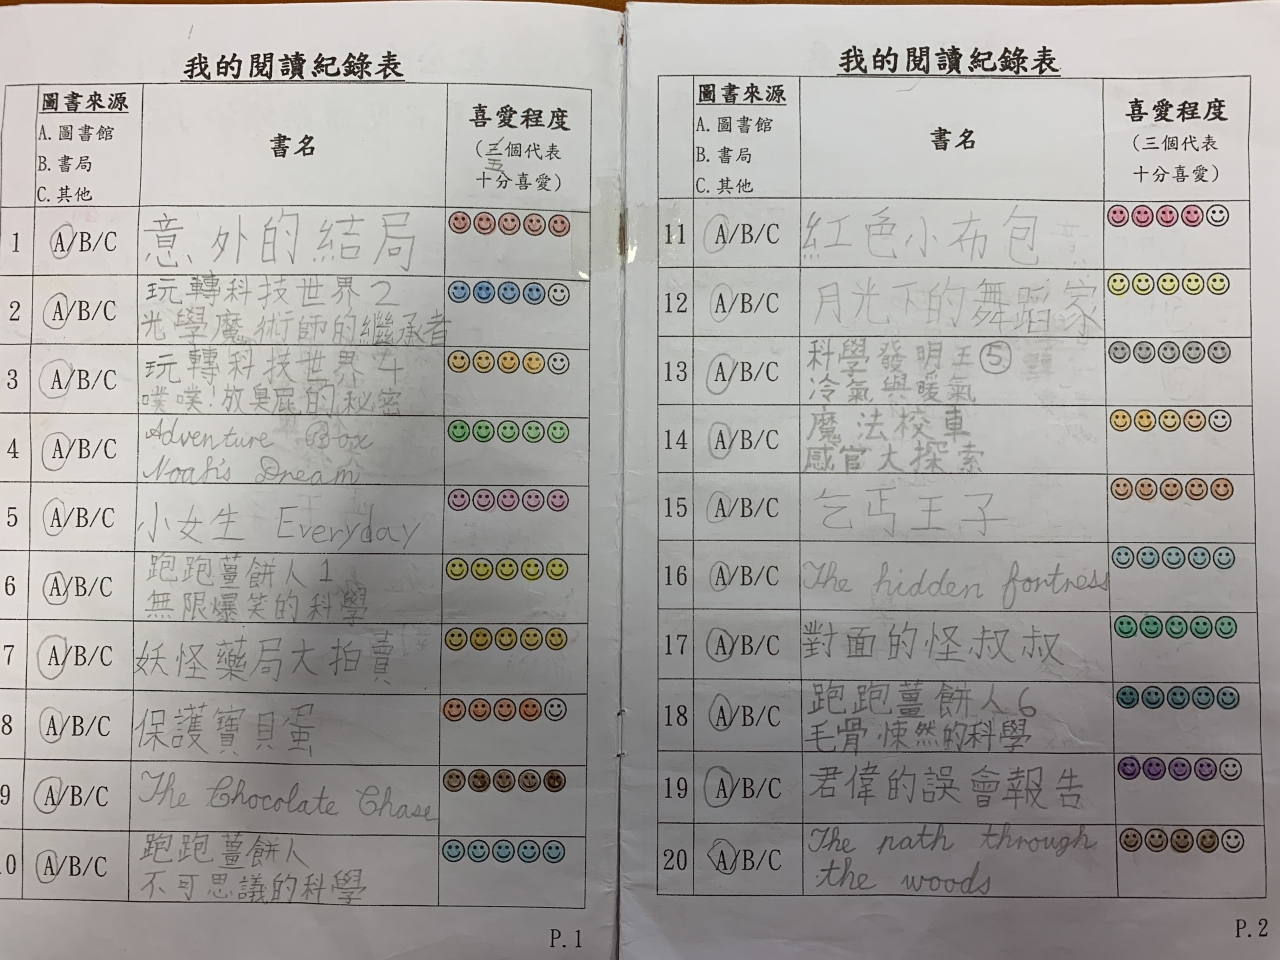 我的閱讀紀錄表
圖書來源
A.圖書館
B.書局
C.其他
書名
喜愛程度
(三個代表
五
十分喜愛)
1 A/B/C 意外的結局
2 A/B/C 玩轉科技世界2
光學魔術師的繼承者
3 A/B/C 玩轉科技世界4
噗噗!放臭屁的秘密
4 A/B/C Adventure Box
Noah's Dream
5 A/B/C 小女生 Everyday
6 A/B/C 跑跑薑餅人1
無限爆笑的科學
7 A/B/C 妖怪藥局大拍賣
8 A/B/C 保護寶貝蛋
9 A/B/C The Chocolate Chase
10 A/B/C 跑跑薑餅人
不可思議的科學
P.1
我的閱讀紀錄表
圖書來源
A.圖書館
B.書局
C.其他
書名
喜愛程度
(三個代表
十分喜愛)
11 A/B/C 紅色小布包
12 A/B/C 月光下的舞蹈家
13 A/B/C 科學發明王⑤
冷氣與暖氣
14 A/B/C 魔法校車
感官大探索
15 A/B/C 乞丐王子
16 A/B/C The hidden fortress
17 A/B/C 對面的怪叔叔
18 A/B/C 跑跑薑餅人6
毛骨悚然的科學
19 A/B/C 君偉的誤會報告
20 A/B/C The path through
the woods
P.2